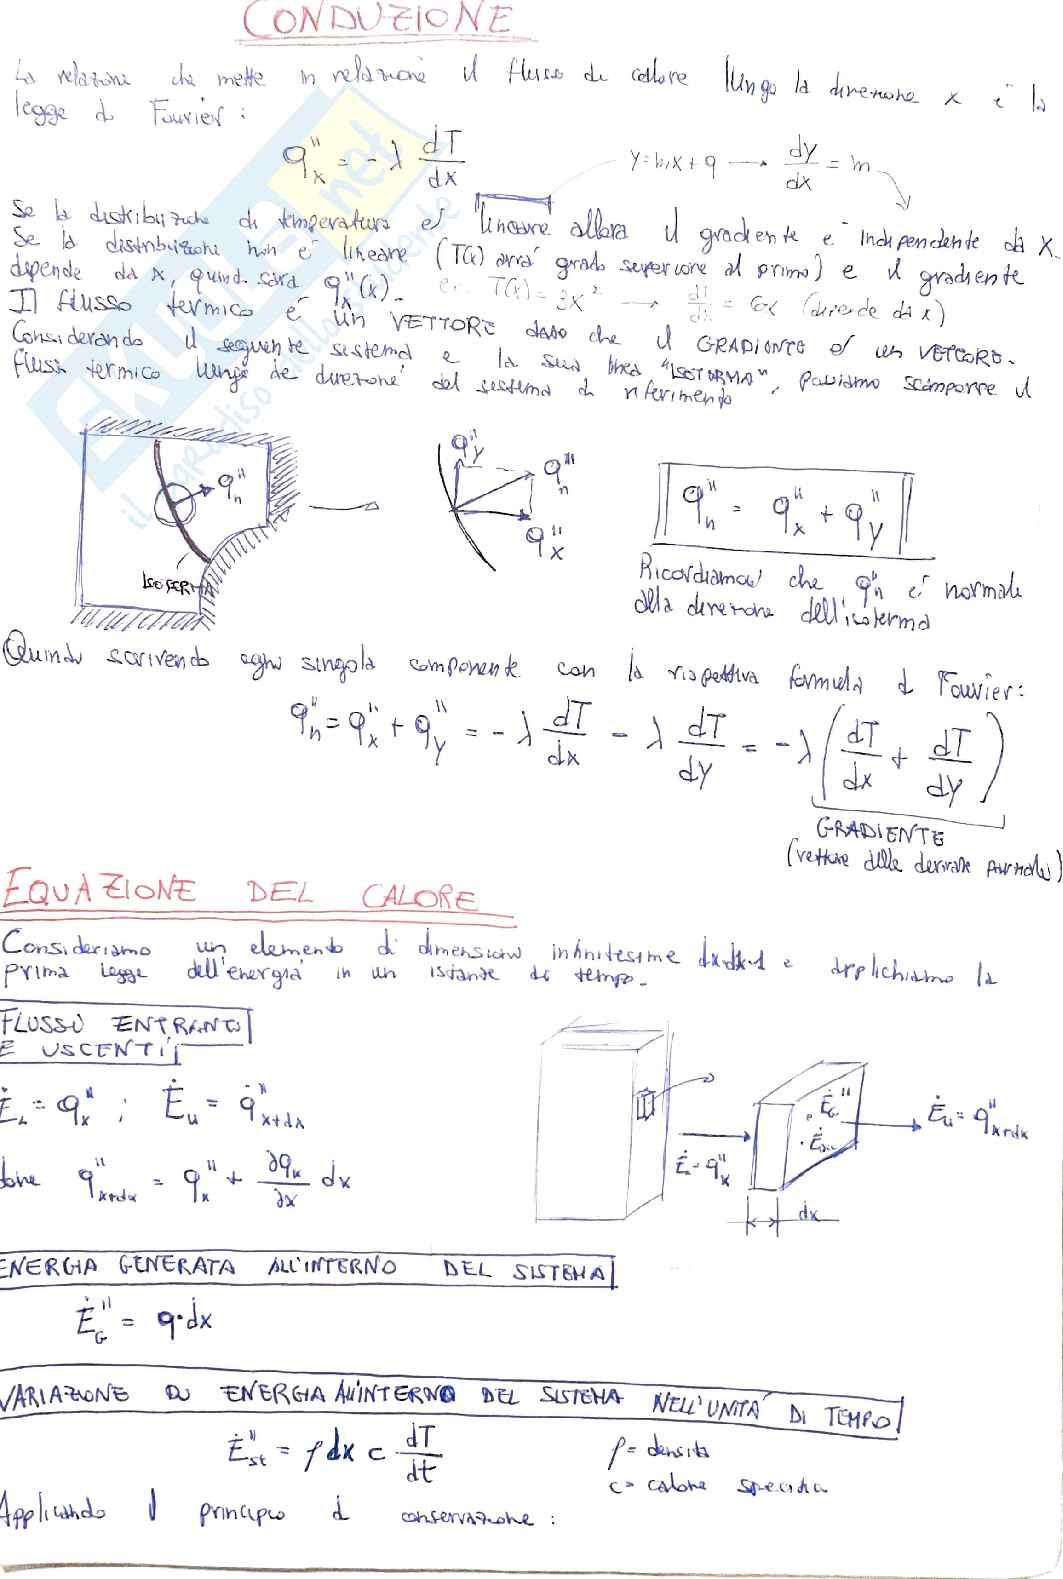 CONDUZIONE
La relazione che mette in relazione il flusso di calore lungo la direzione x è la
legge di Fourier:
q''x = -λ dT/dx
y=mx+q → dy/dx = m
Se la distribuzione di temperatura è lineare allora il gradiente è indipendente da x.
Se la distribuzione non è lineare (T(x) avrà grado superiore al primo) e il gradiente
dipende da x, quindi sarà q''x(x). es. T(x) = 3x² → dT/dx = 6x (dipende da x)
Il flusso termico è un VETTORE dato che il GRADIENTE è un VETTORE.
Considerando il seguente sistema e la sua linea "ISOTERMA", possiamo scomporre il
flusso termico lungo le direzioni del sistema di riferimento
q''n
ISOTERMA
q''y
q'''n
q''x
q''n = q''x + q''y
Ricordiamoci che q''n è normale
alla direzione dell'isoterma
Quindi scrivendo ogni singola componente con la rispettiva formula di Fourier:
q''n = q''x + q''y = -λ dT/dx - λ dT/dy = -λ (dT/dx + dT/dy)
GRADIENTE
(vettore delle derivate parziali)
EQUAZIONE DEL CALORE
Consideriamo un elemento di dimensioni infinitesime dx·dx·1 e applichiamo la
prima legge dell'energia in un istante di tempo.
FLUSSO ENTRANTI
E USCENTI
q''x ; Ėu = q̇''x+dx
dove q''x+dx = q''x + ∂qx/∂x dx
Ė''G
Ėu = q''x+dx
q''x
dx
ENERGIA GENERATA ALL'INTERNO DEL SISTEMA
Ė''G = q·dx
VARIAZIONE DI ENERGIA ALL'INTERNO DEL SISTEMA NELL'UNITÀ DI TEMPO
Ė''st = ρ dx c dT/dt
ρ = densità
c = calore specifico
Applicando il principio di conservazione:
skuola.net
il paradiso dello studente